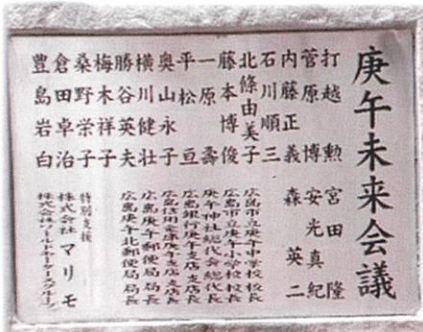 庚午未来会議
打越勲
菅原博
内藤正義
石川順三
北條由美子
藤本博俊
一原壽
平松亘
奥山永子
横川健壮
勝谷英夫
梅木祥子
桑野榮子
倉田卓治
豊島岩白
宮田隆
安光真紀
森英二
広島市立庚午中学校校長
広島市立庚午小学校校長
庚午神社総代会総代長
広島銀行庚午支店支店長
広島信用金庫庚午支店支店長
広島庚午郵便局局長
広島庚午北郵便局局長
特別支援
株式会社マリモ
株式会社